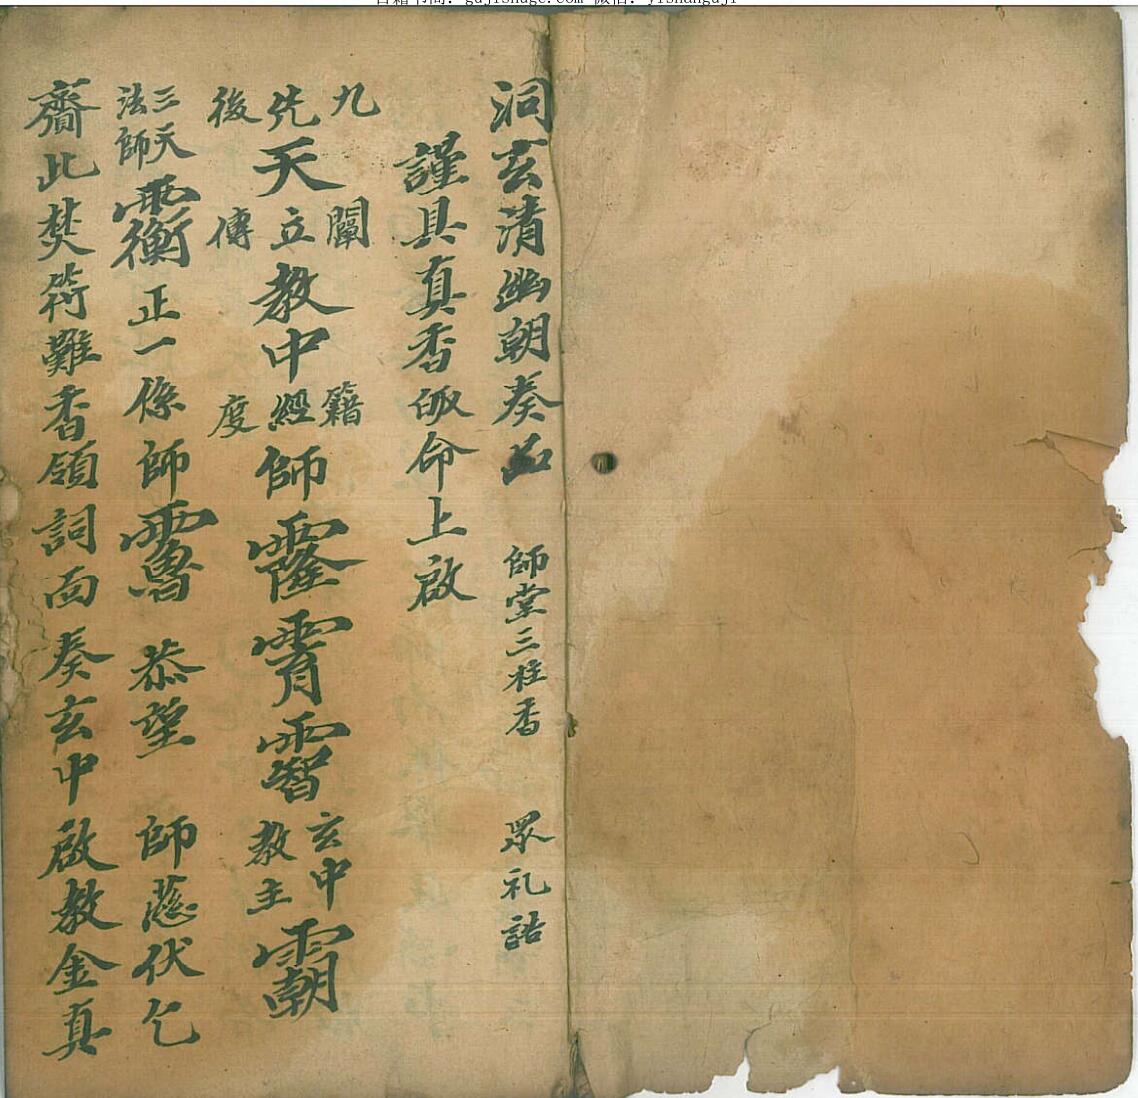 gujishuge.com 微信: yishanguji
洞玄清幽朝奏品 師堂三炷香 眾礼誥
謹具真香皈命上啟
九先後天闡立傳教中籍經度師霳 玄中教主
三天法師 正一係師 恭望 師慈伏乞
齎此焚符難香領詞面奏玄中啟教金真